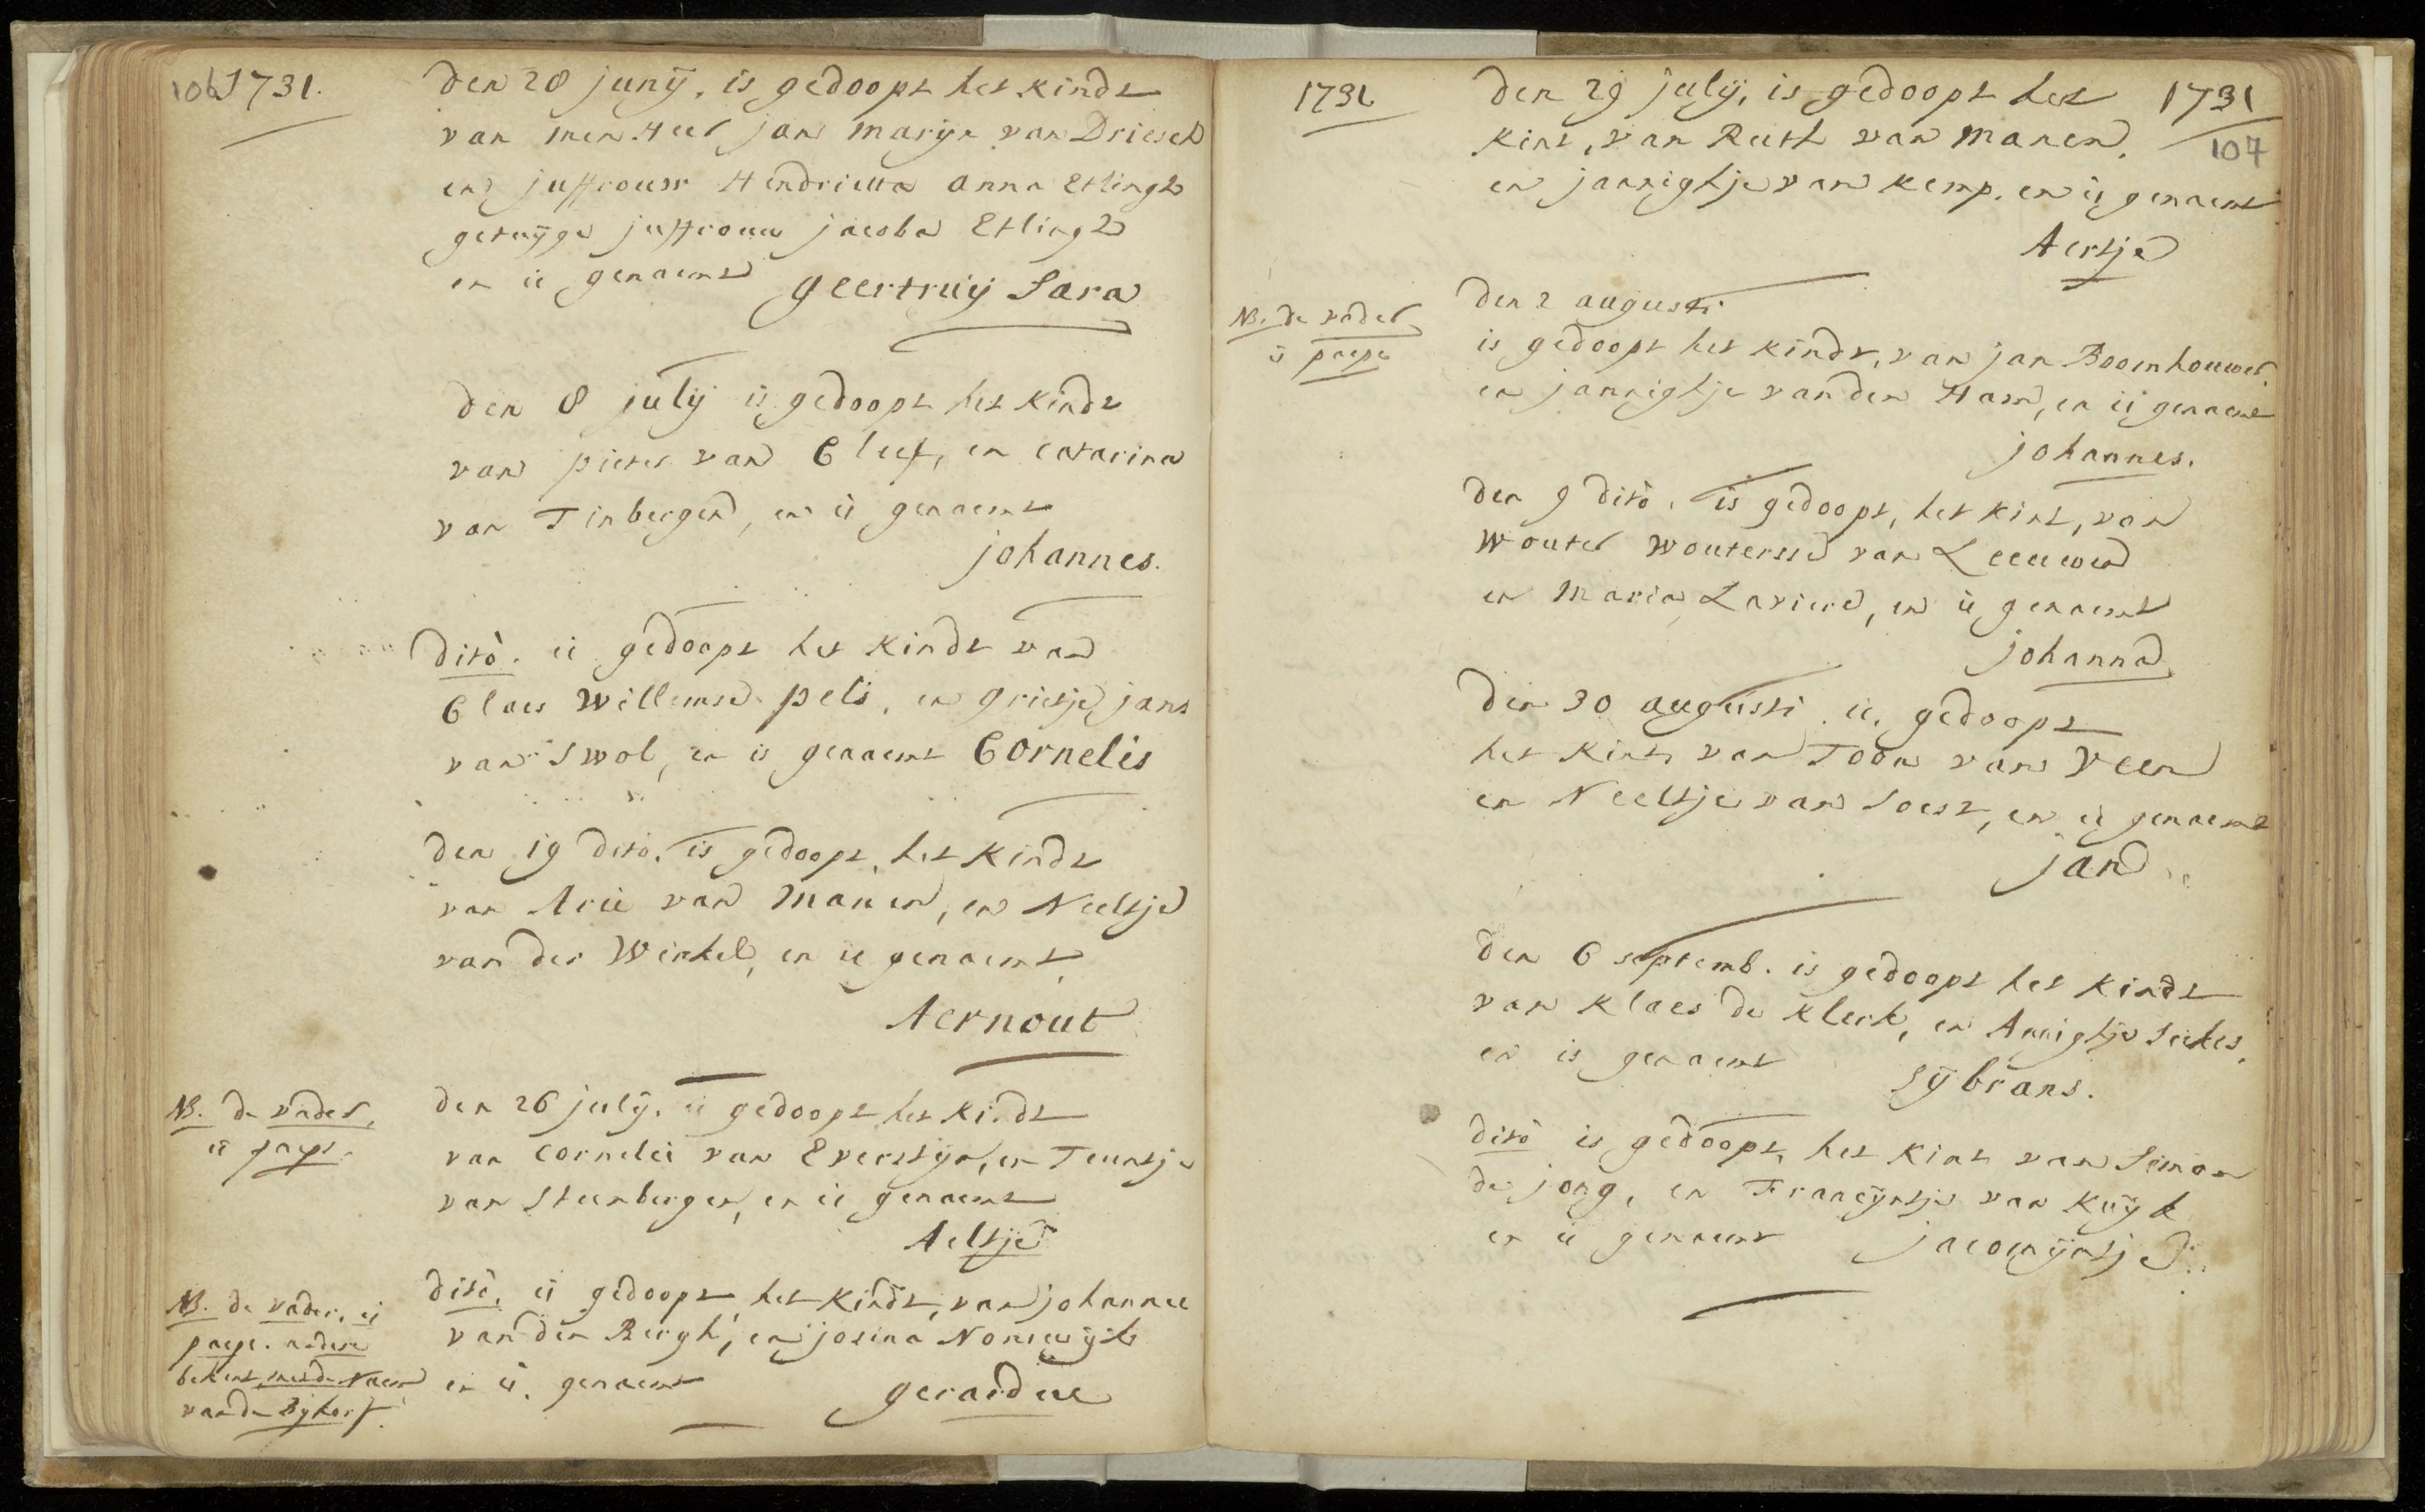 106 1731.
den 28 junij. is gedoopt het kindt
van men Heer jan Marije van Driesch
en juffrouw Hendrietta Anna Etlingh
getuijge juffrouw jacoba Etlingh
en is genaemt geertruij Sara
den 8 julij is gedoopt het kindt
van pieter van Cleef, en catarina
van Tinbergen, en is genaemt
johannes.
dito. is gedoopt het kindt van
Claes Willemse pels, en grietje jans
van Swol, en is genaemt Cornelis
den 19 dito. is gedoopt, het kindt
van Arie van Manen, en Neeltje
van der Winkel, en is genaemt,
Aernout
NB. de vader,
is paeps.
den 26 julij. is gedoopt het kindt
van Cornelis van Everstijn, en Teuntje
van Steenbergen, en is genaemt
Aeltje
NB. de vader, is
paeps. anders
bekent, met de Naem
van de Bijkorf.
dito, is gedoopt, het kindt, van johannes
van den Bergh, en josina
en is. genaemt gerardus
1731
1731
107
den 29 julij, is gedoopt het
kint, van Ruth van Manen.
en jannightje van kemp. en is genaemt
Aertje
NB. de vader
is paeps
den 2 augusti
is gedoopt het kindt, van jan Boomhouwer.
en jannightje van den Ham, en is genaemt
johannes.
den 9 dito. is gedoopt, het kint, van
Wouter Wouterse van Leeuwen
en Maria Laviere, en is genaemt
johanna
den 30 augusti. is. gedoopt
het kint van Toon van Veen
en Neeltje van Soest, en is genaemt
jan
den 6 septemb. is gedoopt het kindt
van Klaes de Klerk, en Annightje
en is genaemt Sijbrans.
dito is gedoopt, het kint van Simon
de jong, en Francijntje van Kuijk
en is genaemt jacomijntje